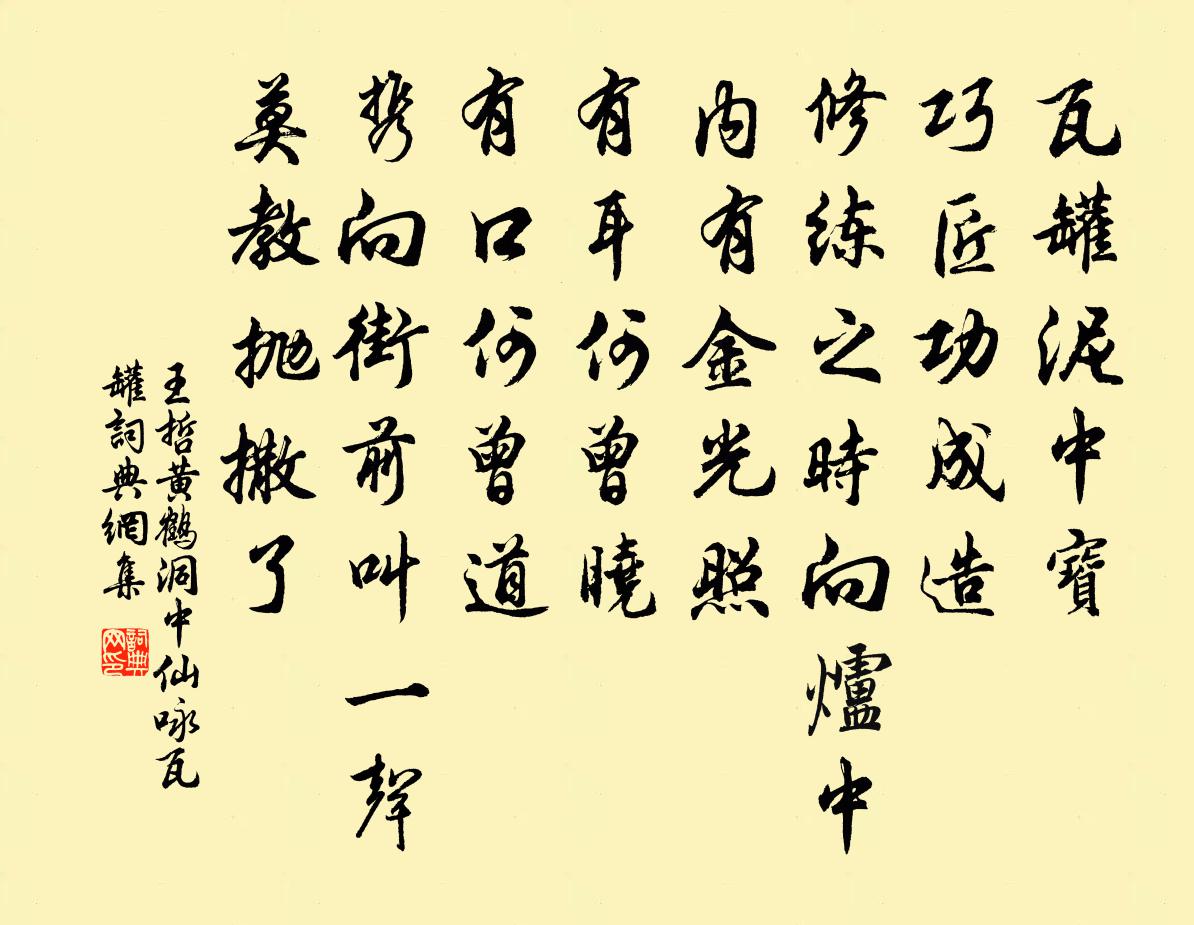 瓦罐泥中寶
巧匠功成造
修练之時向爐中
内有金光照
有耳何曾曉
有口何曾道
携向街前叫一聲
莫教抛撒了
王哲黄鹤洞中仙咏瓦
罐詞典網集
詞典
网印